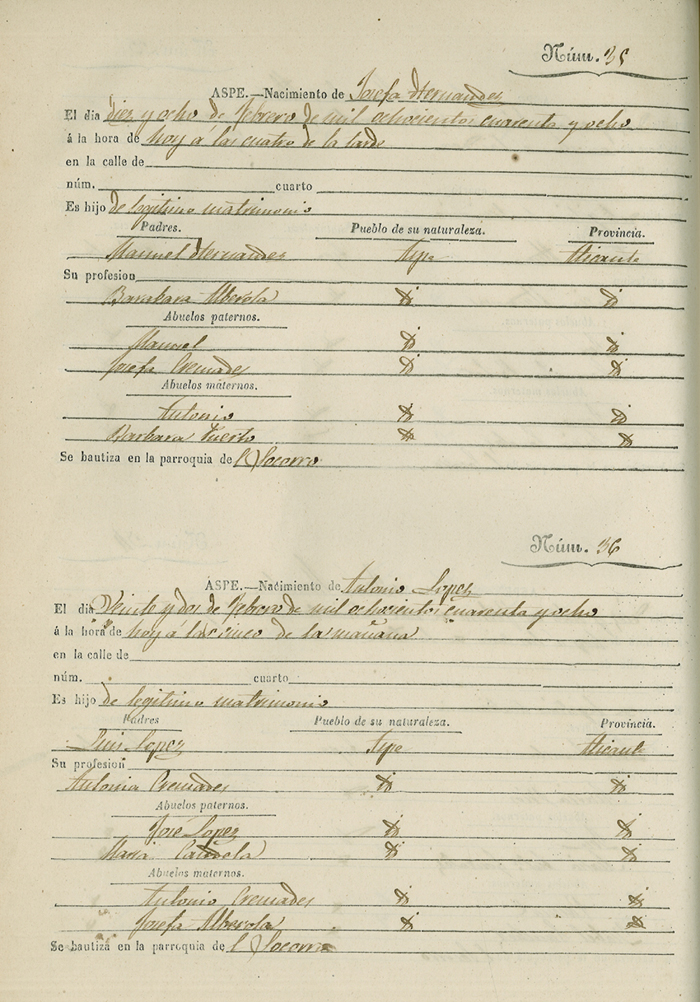 Núm. 35
ASPE.—Nacimiento de Josefa Hernandez
El dia diez y ocho de Febrero de mil ochocientos cuarenta y ocho
á la hora de hoy á las cuatro de la tarde
en la calle de
núm. cuarto
Es hijo de legitimo matrimonio
Padres. Pueblo de su naturaleza. Provincia.
Manuel Hernandez Aspe Alicante
Su profesion
Barabara Alberola id id
Abuelos paternos.
Manuel id id
Josefa Cremades id id
Abuelos maternos.
Antonio id id
Barbara Puerto id id
Se bautiza en la parroquia de el Socorro
Núm. 36
ASPE.—Nacimiento de Antonio Lopez
El dia Veinte y dos de Febrero de mil ochocientos cuarenta y ocho
á la hora de hoy á las cinco de la mañana
en la calle de
núm. cuarto
Es hijo de legitimo matrimonio
Padres Pueblo de su naturaleza. Provincia.
Luis Lopez Aspe Alicante
Su profesion
Antonia Cremades id id
Abuelos paternos.
José Lopez id id
Maria id id
Abuelos maternos.
Antonio Cremades id id
Josefa Alberola id id
Se bautiza en la parroquia de el Socorro